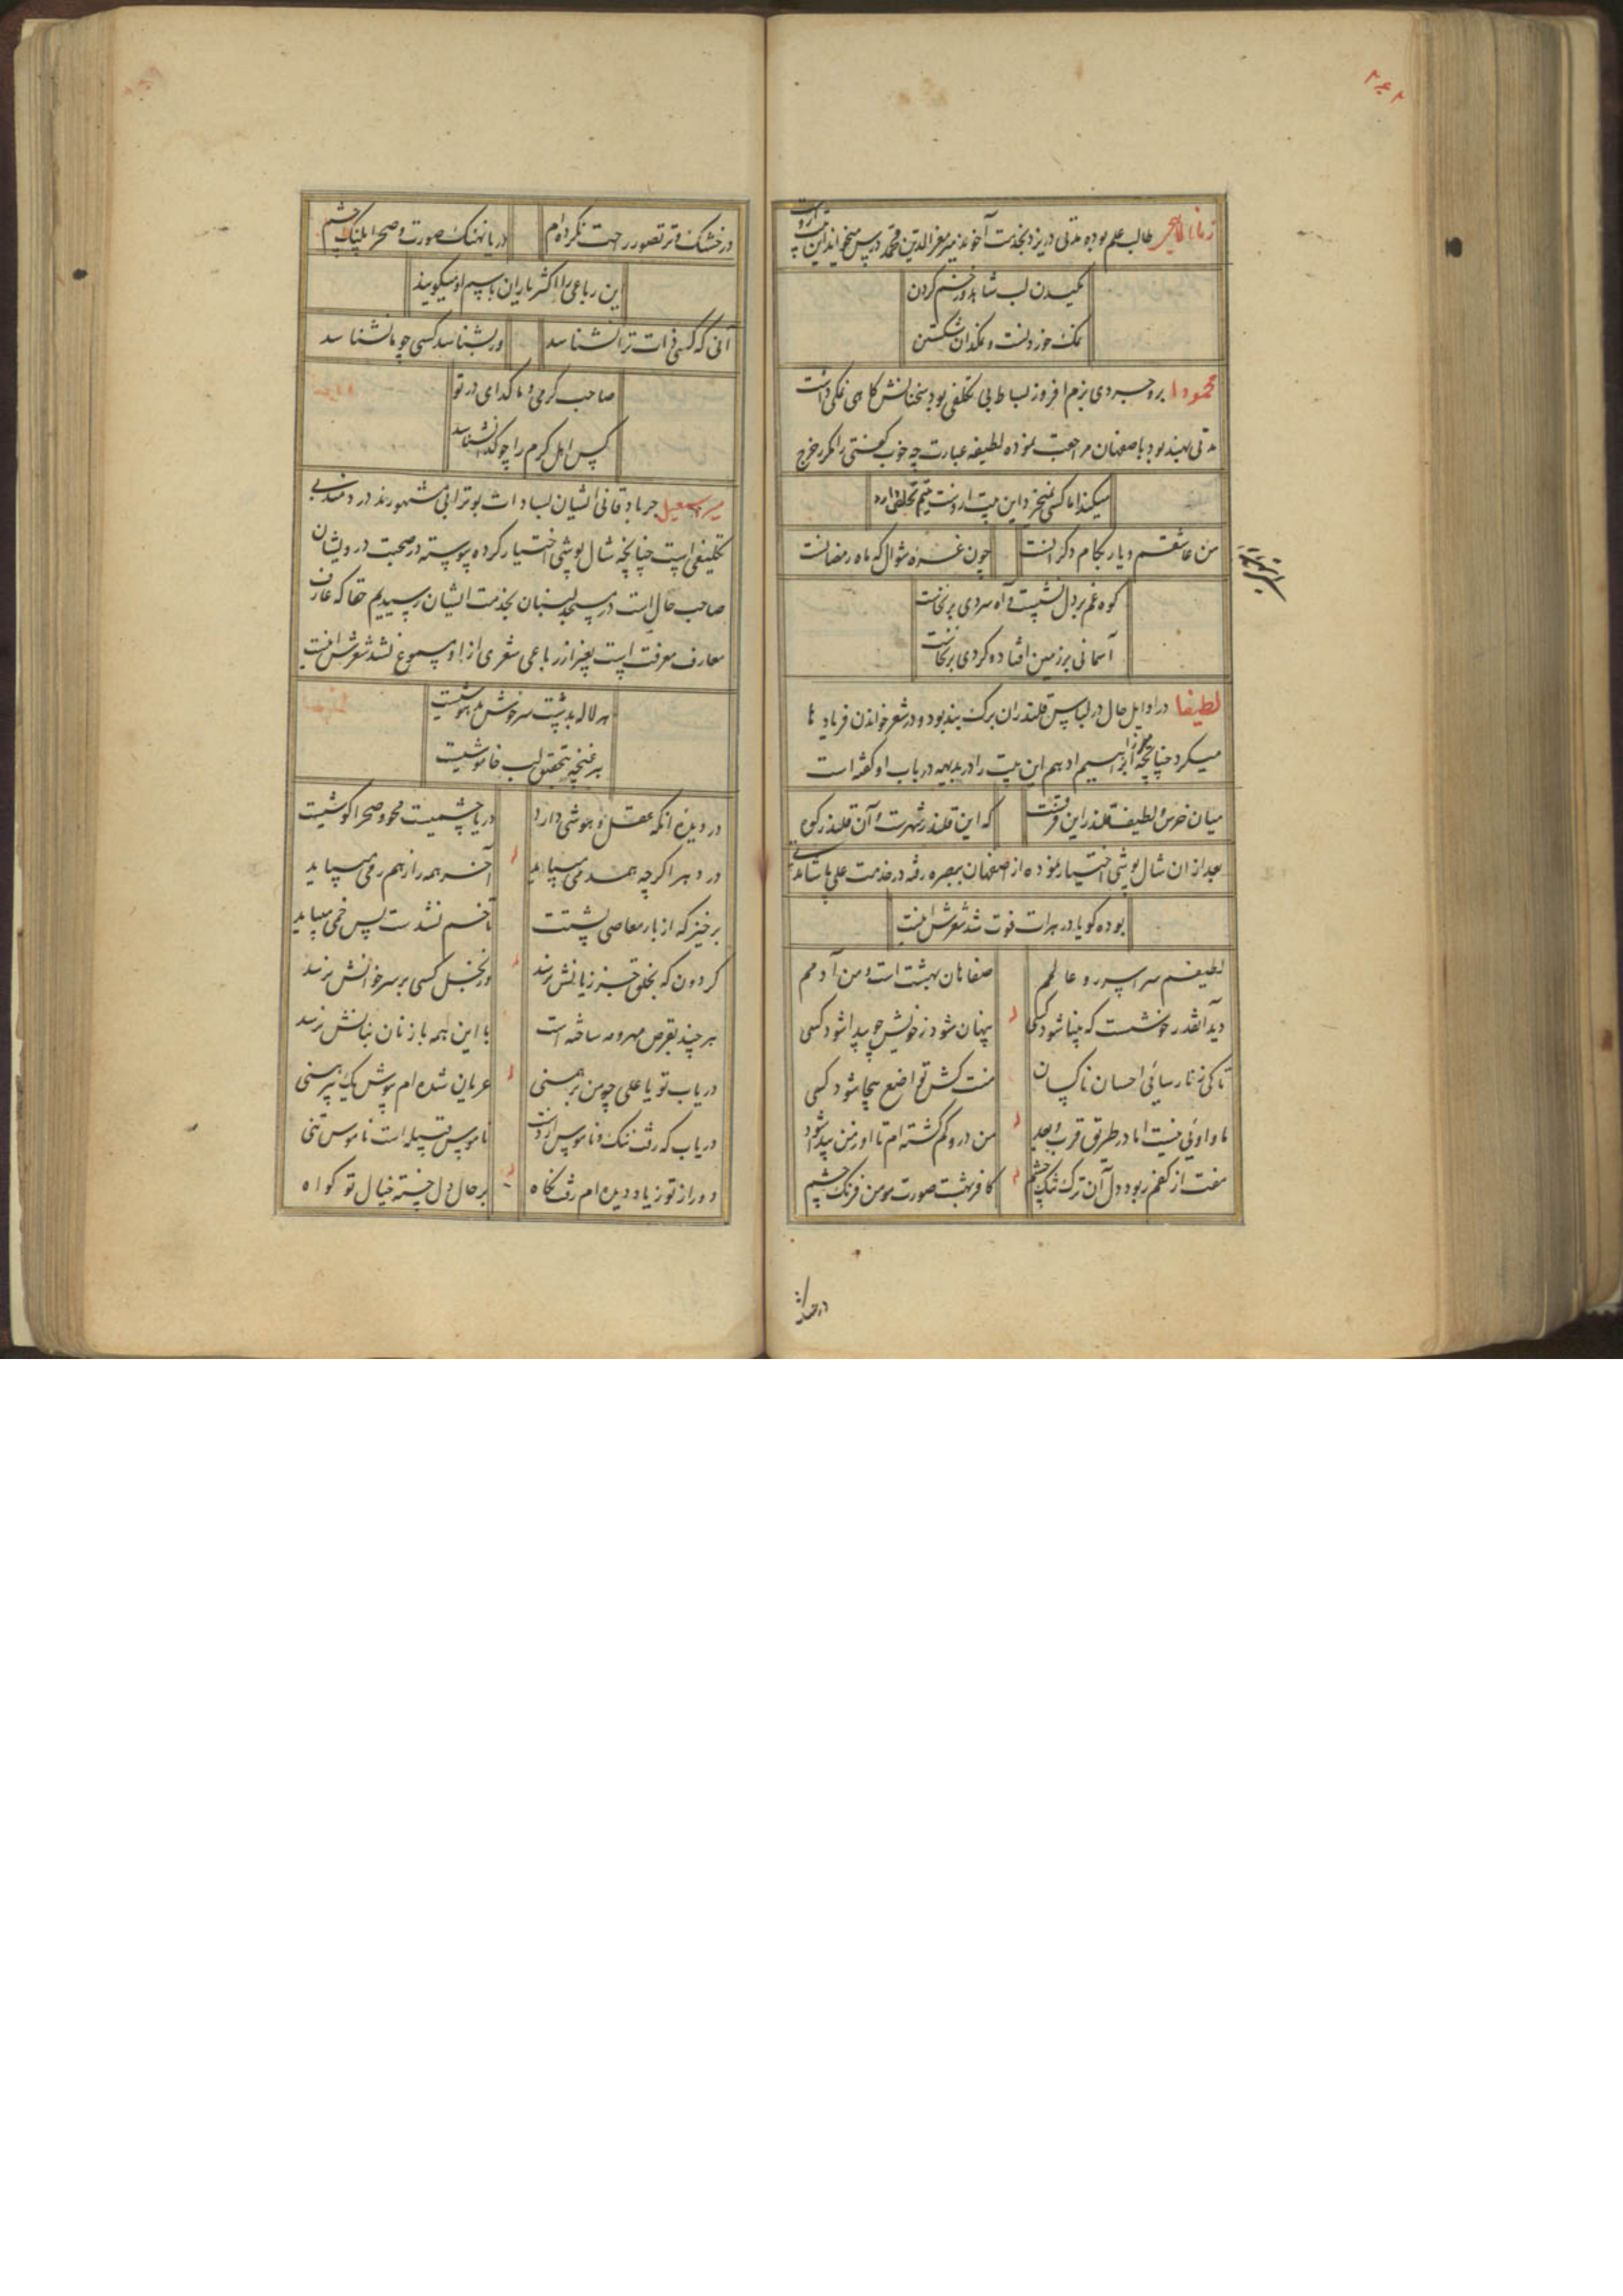 طالب علم بوده مدتی در یزد بخدمت آخوند میر معزالدین محمد درس میخواند این بیت ازوست
مکیدن لب شاهد و زخم کردن
نمک خوردنست و نمکدان شکستن
محمودا بروجردی بزم افروز بساط بی تکلفی بود سخنانش کاهی نمکی داشت
مدتی بهند بود باصفهان مراجعت نموده لطیفه عبارت چه خوب گفتی را مکرر خرج
میکند اما کسی نمیخرد این بیت ازوست یتیم تخلص دارد
من عاشقم و یار بکام دگرانست
چون غره شوال که ماه رمضانست
کوه غم بر دل نشست و آه سردی برنخاست
آسمانی بر زمین افتاد و گردی برنخاست
لطیفا در اوایل حال در لباس قلندران برک بند بود و در شعر خواندن فریادها
میکرد چنانچه میرزا ابراهیم ادهم این بیت را در بدیهه در باب او گفته است
میان خرس و لطیف قلندر این فرقست
که این قلندر شهرست و آن قلندر کوه
بعد از ان شال پوشی اختیار نموده از اصفهان ببصره رفته در خدمت علی پاشا
بوده گویا در هرات فوت شد شعرش اینست
لطیفم سراسر رو عالمم
صفاهان بهشت است و من آدمم
دید آنقدر خوشست که بینا شود کسی
پنهان شود ز خویش چو پیدا شود کسی
تا کی ز نارسائی احسان ناکسان
منت کش تواضع بیجا شود کسی
ما و اوئی نیست اما در طریق قرب و بعد
من درو گم گشته ام تا او ز من پیدا شود
مفت از کفم ربود دل آن ترک شنک چشم
کافر بهشت صورت مومن فرنک چشم
در خشک و تر تصور رحمت نکرده ام
دریا نهنک صورت و صحرا پلنک چشم
این رباعی را اکثر یاران باسم او میگویند
آنی که کسی ذات ترا نشناسد
ور بشناسد کسی چو ما نشناسد
صاحب کرمی و ما گدای در تو
کس اهل کرم را چو گدا نشناسد
میر اسمعیل جربادقانی ایشان بسادات بوترابی مشهورند دردمند بی
تکلیفی است چنانچه شال پوشی اختیار کرده پیوسته در صحبت درویشان
صاحب حال است در مسجد لنبان بخدمت ایشان رسیدیم حقا که عارف
معارف معرفت است بغیر از رباعی شعری از او مسموع نشد شعرش اینست
هر لاله بدشت سرخوش مدهوشیست
هر غنچه بتحقیق لب خاموشیست
در دیده انکه عقل و هوشی دارد
دریا چشمیست محو و صحرا گوشیست
در دهر اگرچه همدمی میباید
آخر همه را ز هم رمی میباید
برخیز که از بار معاصی پشتت
تا خم نشدست پس خمی میباید
گردون که بخلق جز زیانش نرسد
وز بخل کسی بر سر خوانش نرسد
هر چند بقرص مهر و مه ساخته است
با این همه باز نان بنانش نرسد
دریاب تو یا علی چو من برهمنی
عریان شده ام بپوش یک پیرهنی
دریاب که رفت ننک و ناموس از دست
ناموس قبیله است ناموس تنی
دور از تو ز یاد دیده ام رفت نگاه
بر حال دل خسته خیال تو گواه